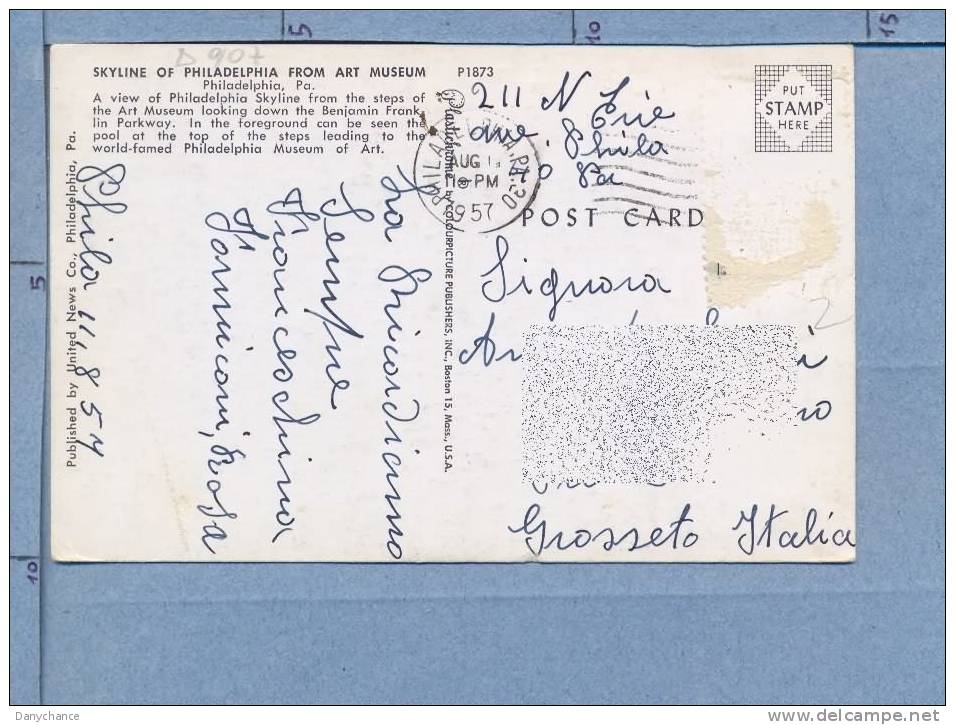 5
10
15
5
10
D 907
SKYLINE OF PHILADELPHIA FROM ART MUSEUM
Philadelphia, Pa.
A view of Philadelphia Skyline from the steps of
the Art Museum looking down the Benjamin Frank-
lin Parkway. In the foreground can be seen the
pool at the top of the steps leading to the
world-famed Philadelphia Museum of Art.
P1873
Published by United News Co., Philadelphia, Pa.
Phila 11 8 57
La Ricordiamo
Sempre
Tomniconi, Rosa
Plastichrome ® by COLOURPICTURE PUBLISHERS, INC., Boston 15, Mass., U.S.A.
211 N Erie
ave. Phila
40 Pa
PHILADELPHIA, PA. 20
AUG
11 PM
1957
PUT
STAMP
HERE
POST CARD
Signora
Grosseto Italia
2
Danychance
www.delcampe.net